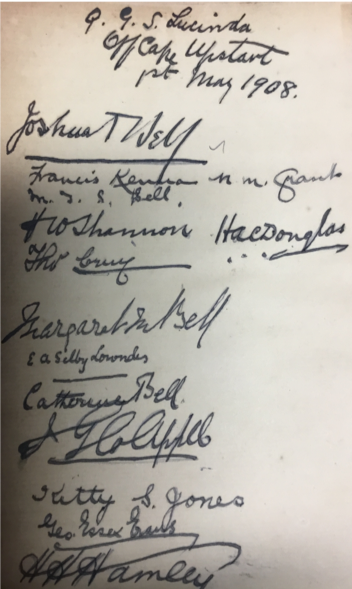 Q. G. S. Lucinda
Off Cape Upstart
1st May 1908.
Joshua T Bell
Francis Kenna N M. Grant
M. D. S. Bell.
H W Shannon Hac Douglas
Thos
Margaret M Bell
E A Selby Lowndes
Catherine Bell.
J G Appel
Kitty S. Jones
Geo. Essex Evans
H H Hamley